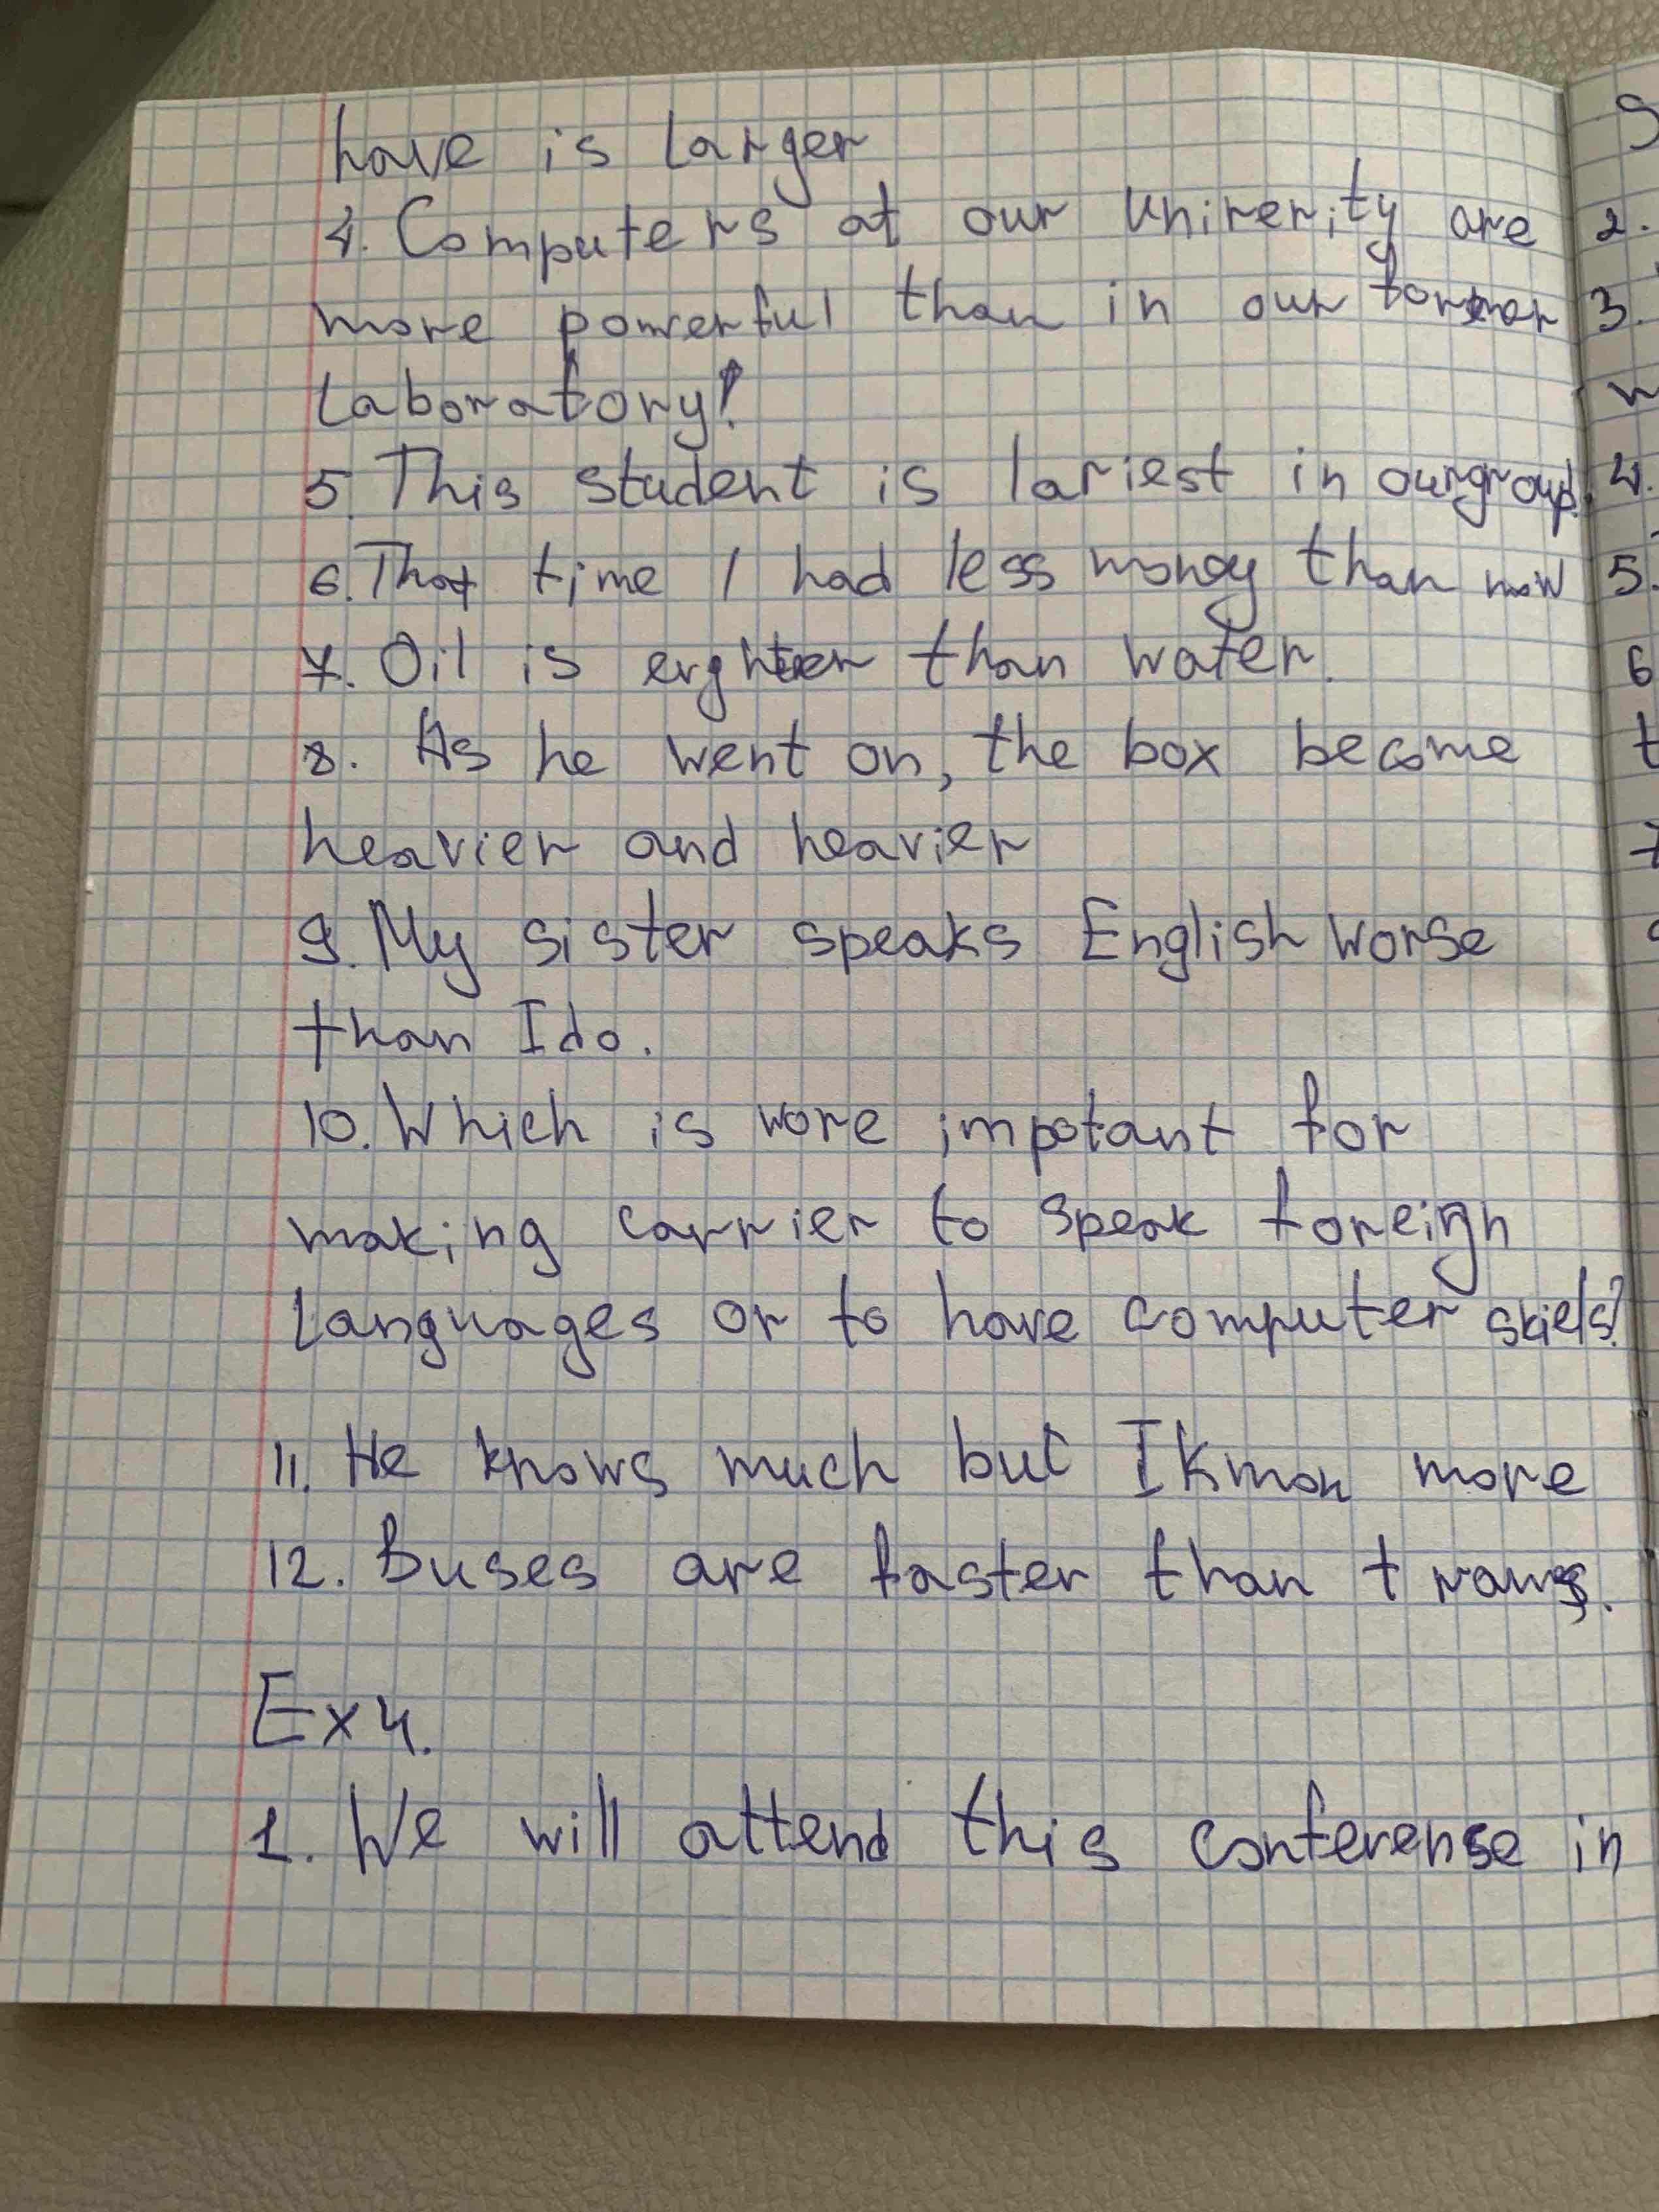 have is larger
4. Computers at our unirerity are
more powerful than in our former
laboratory!
5. This student is lariest in ourgroup.
6. That time I had less money than now
7. Oil is erghter than water.
8. As he went on, the box become
heavier and heavier
9. My sister speaks English worse
than I do.
10. Which is more impotant for
making carrier to speak foreign
languages or to have computer skiels?
11. He knows much but I know more
12. Buses are faster than trams.
Ex 4.
1. We will attend this conference in
2.
3.
4.
5.
6
7